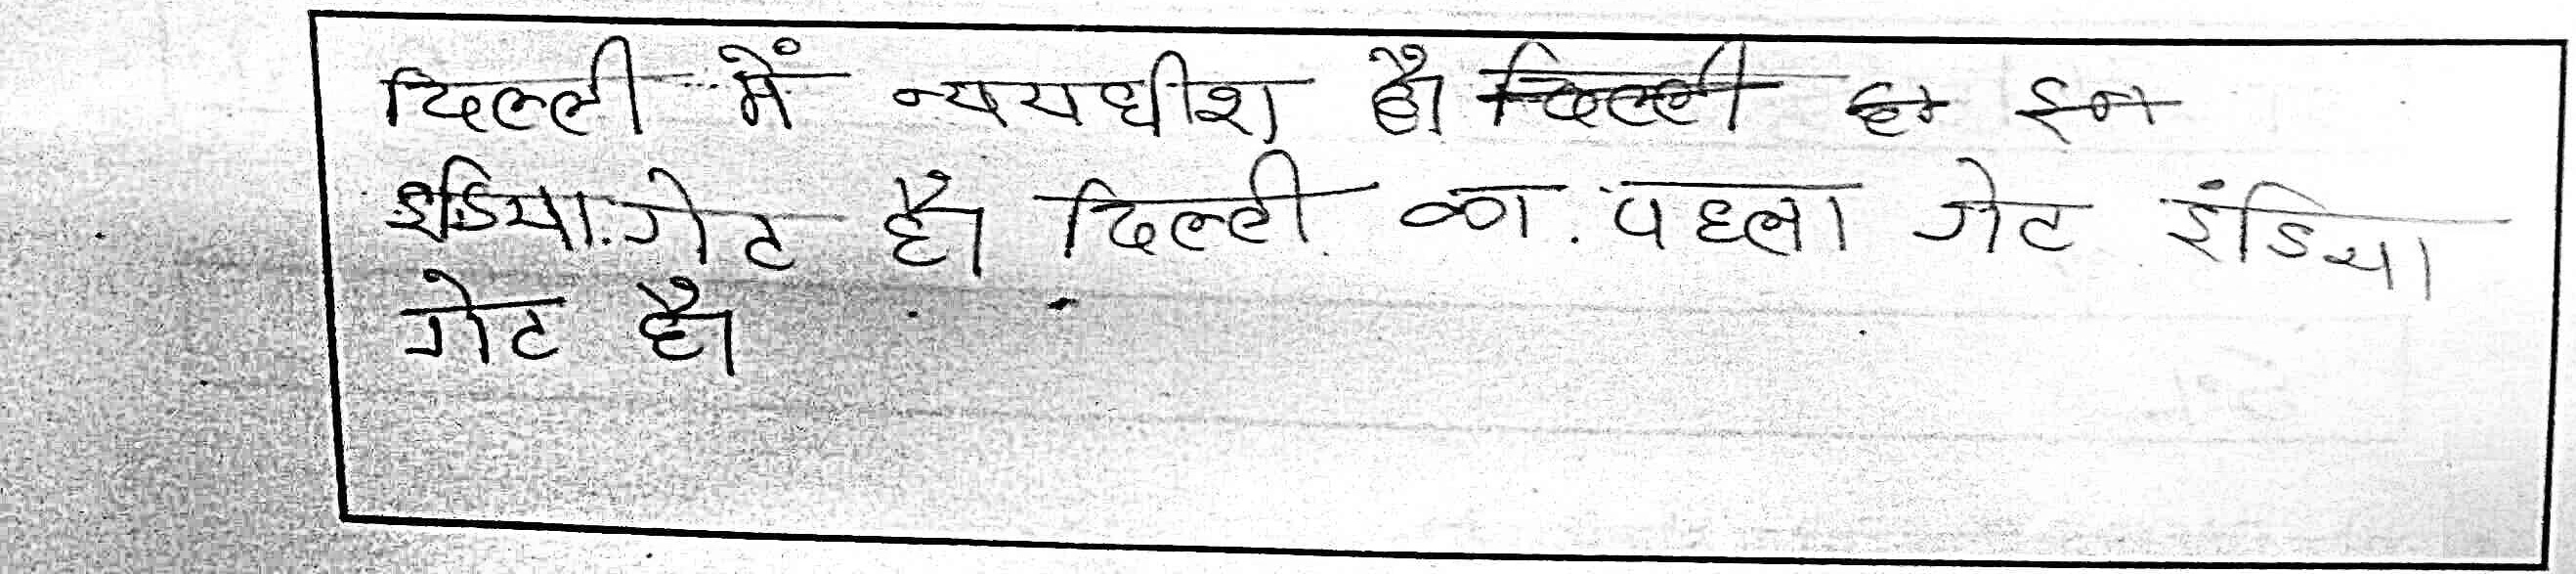 दिल्ली में न्ययधीश है।
इडिया गेट है। दिल्ली का पहला गेट इंडिया
गेट है।